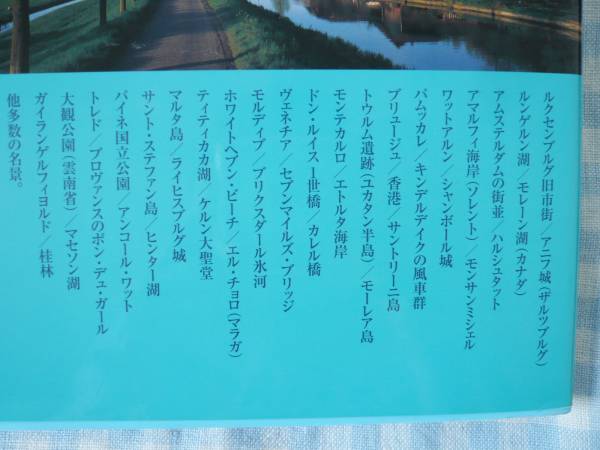 ルクセンブルグ旧市街／アニフ城(ザルツブルグ)
ルンゲルン湖／モレーン湖(カナダ)
アムステルダムの街並／ハルシュタット
アマルフィ海岸(ソレント)／モンサンミシェル
ワットアルン／シャンボール城
パムッカレ／キンデルデイクの風車群
ブリュージュ／香港／サントリーニ島
トウルム遺跡(ユカタン半島)／モーレア島
モンテカルロ／エトルタ海岸
ドン・ルイス1世橋　カレル橋
ヴェネチア／セブンマイルズ・ブリッジ
モルディブ／ブリクスダール氷河
ホワイトヘブン・ビーチ／エル・チョロ(マラガ)
ティティカカ湖／ケルン大聖堂
マルタ島／ライヒスブルグ城
サント・ステファン島／ヒンター湖
パイネ国立公園／アンコール・ワット
トレド／プロヴァンスのポン・デュ・ガール
大観公園(雲南省)／マセソン湖
ガイランゲルフィヨルド／桂林
他多数の名景。